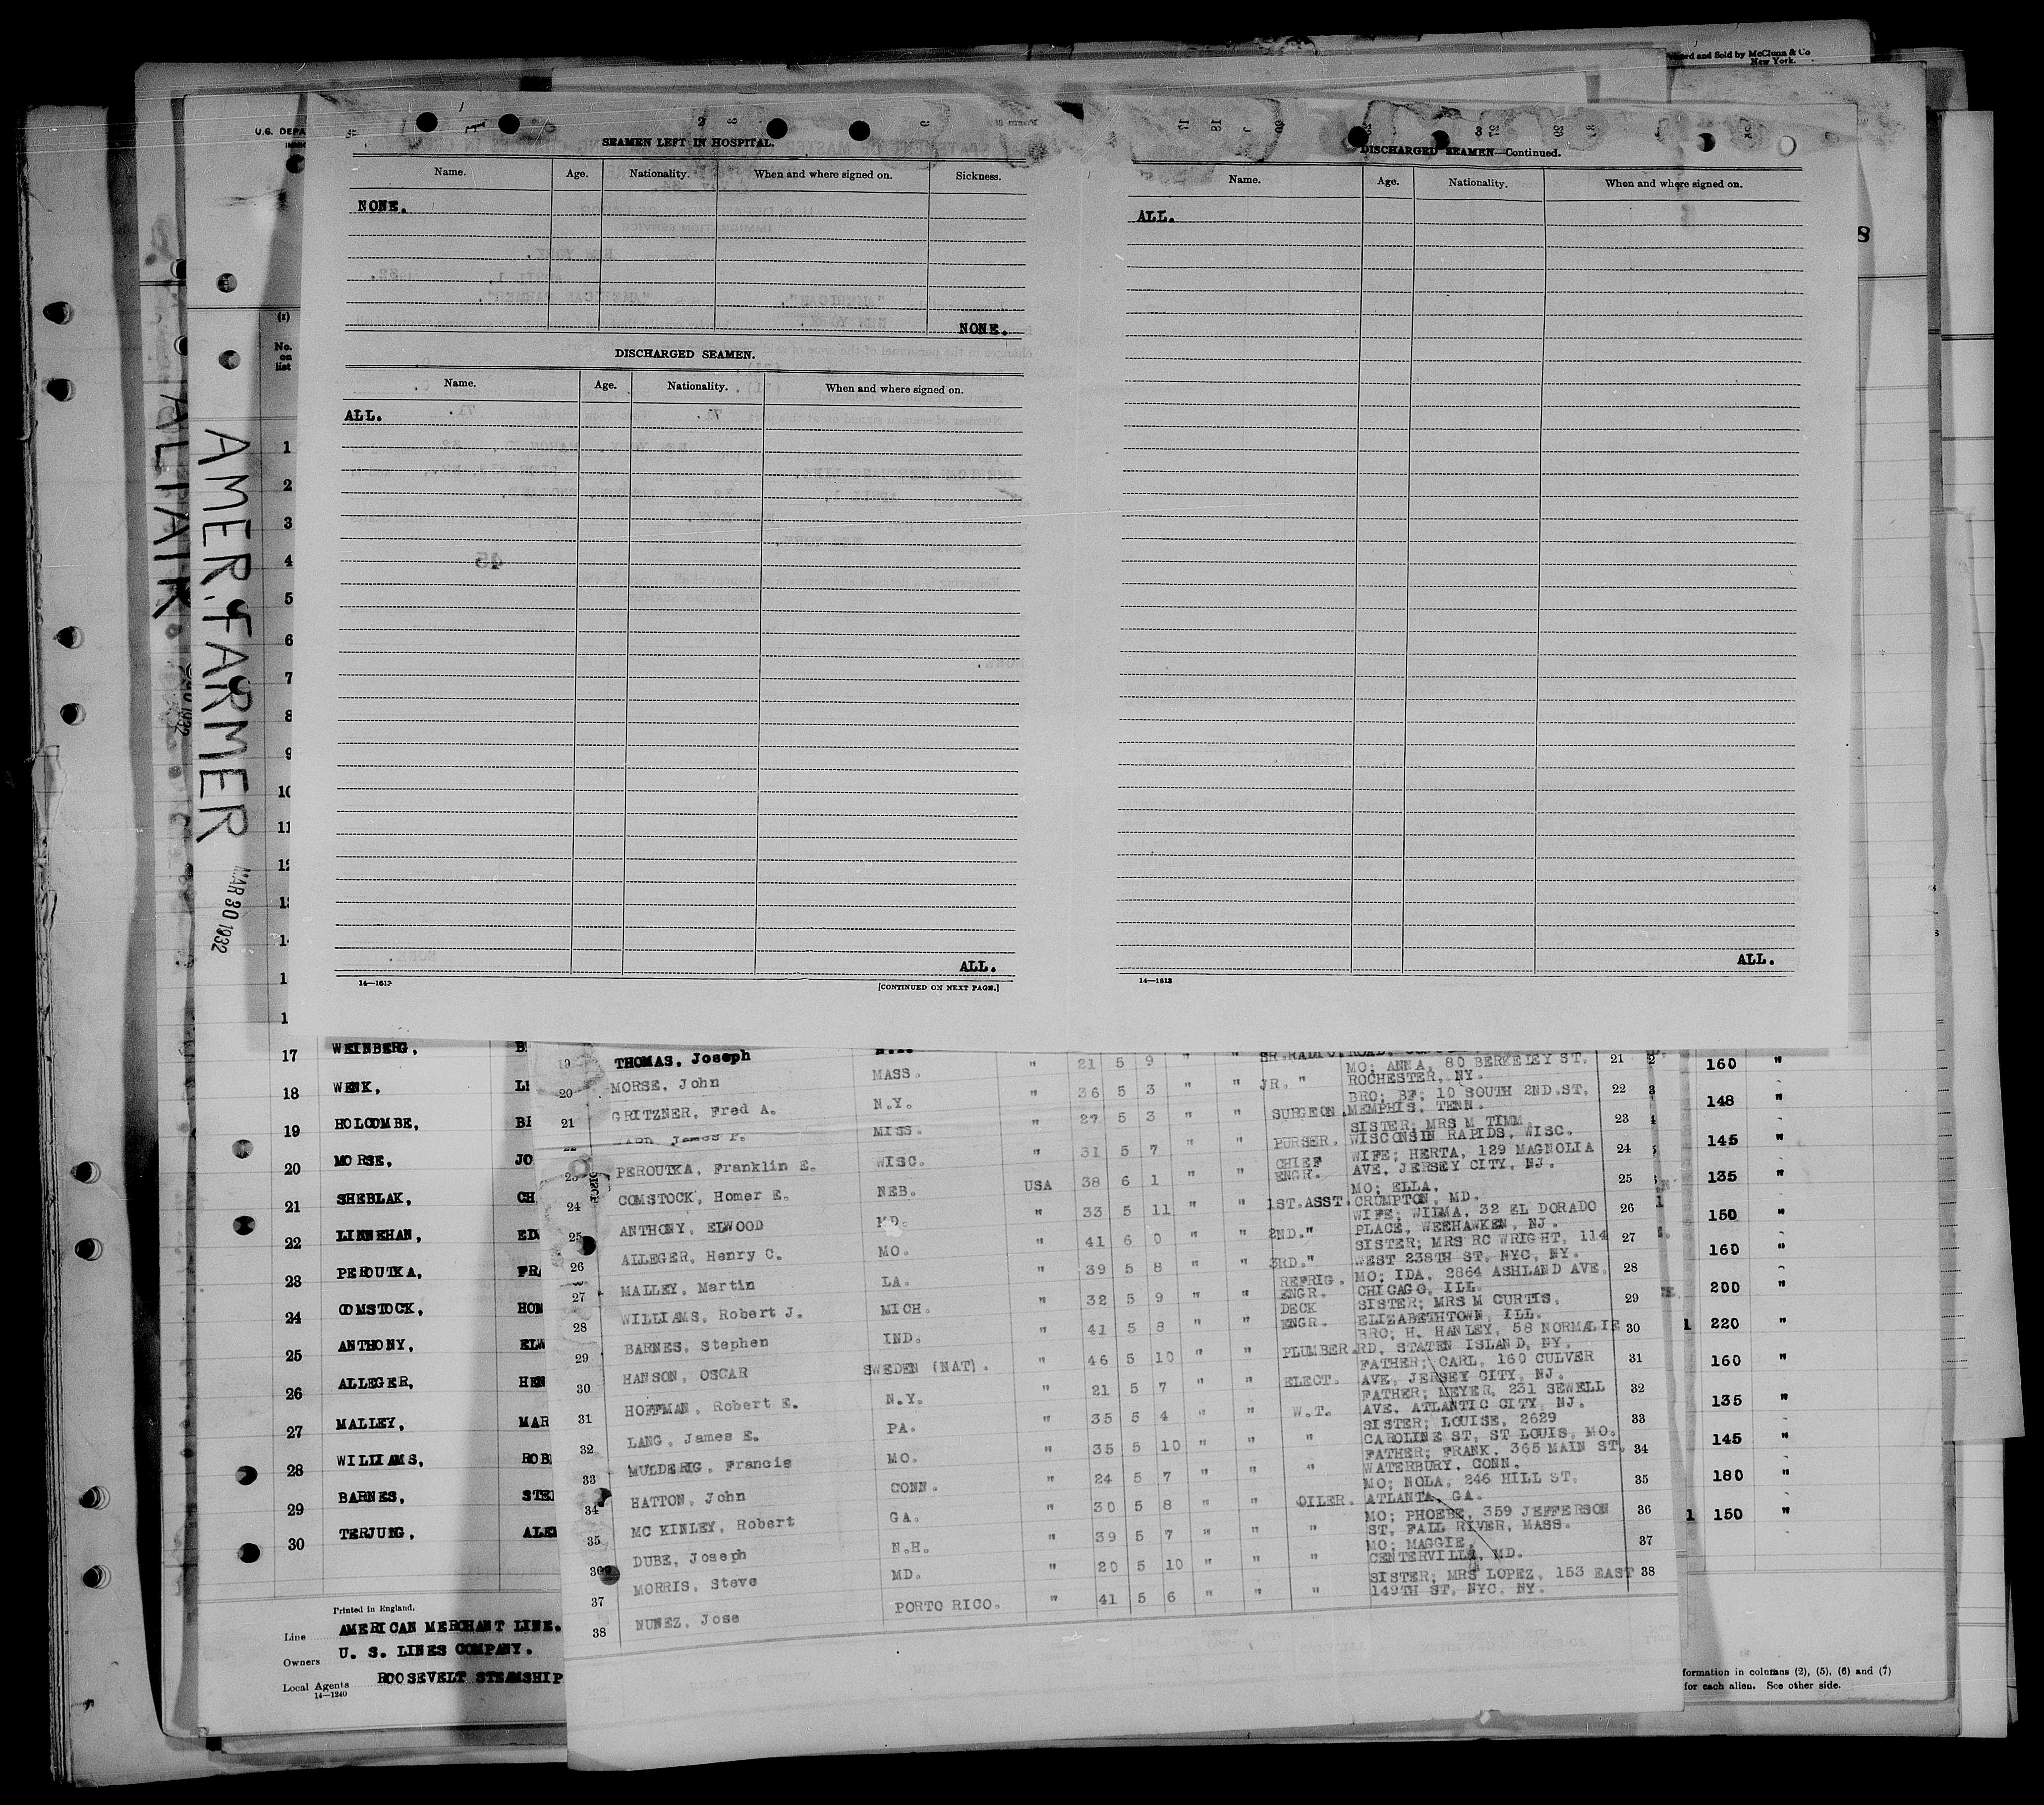 Printed and Sold by McClunn & Co
New York.
U.S. DEPA
SEAMEN LEFT IN HOSPITAL.
Name. Age. Nationality. When and where signed on. Sickness.
NONE.
NONE.
DISCHARGED SEAMEN.
Name. Age. Nationality. When and where signed on.
ALL.
ALL.
14—1613
[CONTINUED ON NEXT PAGE.]
DISCHARGED SEAMEN—Continued.
Name. Age. Nationality. When and where signed on.
ALL.
ALL.
14—1613
8
ALTAIR
AMER. FARMER
MAR 30 1932
(1)
No.
on
list
1
2
3
4
5
6
7
8
9
10
11
17 WEINBERG,
18 WENK,
19 HOLCOMBE,
20 MORSE, JO
21 SHEBLAK, CH
22 LINNEHAN,
23 PEROUTKA, FRA
24 COMSTOCK, HOM
25 ANTHONY, ELW
26 ALLEGER, HEN
27 MALLEY, MAR
28 WILLIAMS, ROB
29 BARNES, STE
30 TERJUNG,
Printed in England,
Line AMERICAN MERCHANT LINE.
Owners U. S. LINES COMPANY.
Local Agents ROOSEVELT STEAMSHIP
14—1240
19 THOMAS, Joseph
20 MORSE, John MASS. " 21 5 9 " "
21 GRITZNER, Fred A. N.Y. " 36 5 3 " " JR. "
James P. MISS. " 27 5 3 " " SURGEON.
23 PEROUTKA, Franklin E. WISC. " 31 5 7 " " PURSER.
24 COMSTOCK, Homer E. NEB. USA 38 6 1 " " CHIEF ENGR.
25 ANTHONY, ELWOOD MD. " 33 5 11 " " 1ST.ASST.
26 ALLEGER, Henry C. MO. " 41 6 0 " " 2ND."
27 MALLEY, Martin LA. " 39 5 8 " " 3RD."
28 WILLIAMS, Robert J. MICH. " 32 5 9 " " REFRIG. ENGR.
29 BARNES, Stephen IND. " 41 5 8 " " DECK ENGR.
30 HANSON, OSCAR SWEDEN (NAT). " 46 5 10 " " PLUMBER.
31 HOFFMAN, Robert E. N.Y. " 21 5 7 " " ELECT.
32 LANG, James E. PA. " 35 5 4 " " W.T.
33 MULDERIG, Francis MO. " 35 5 10 " " "
34 HATTON, John CONN. " 24 5 7 " " "
35 MC KINLEY, Robert GA. " 30 5 8 " " OILER.
36 DUBE, Joseph N.H. " 39 5 7 " " "
37 MORRIS, Steve MD. " 20 5 10 " " "
38 NUNEZ, Jose PORTO RICO. " 41 5 6 " " "
MO; ANNA, 80 BERKELEY ST. 21
ROCHESTER, NY.
BRO; BF; 10 SOUTH 2ND.ST. 22
MEMPHIS, TENN.
SISTER; MRS M TIMM 23
WISCONSIN RAPIDS, WISC.
WIFE; HERTA, 129 MAGNOLIA 24
AVE, JERSEY CITY, NJ.
MO; ELLA, 25
CRUMPTON, MD.
WIFE; WILMA, 32 EL DORADO 26
PLACE, WEEHAWKEN, NJ.
SISTER; MRS RC WRIGHT, 114 27
WEST 238TH ST, NYC, NY.
MO; IDA, 2864 ASHLAND AVE. 28
CHICAGO, ILL.
SISTER; MRS M CURTIS, 29
ELIZABETHTOWN, ILL.
BRO; H. HANLEY, 58 NORMALIE 30
RD, STATEN ISLAND, NY.
FATHER; CARL, 160 CULVER 31
AVE, JERSEY CITY, NJ.
FATHER; MEYER, 231 SEWELL 32
AVE, ATLANTIC CITY, NJ.
SISTER; LOUISE, 2629 33
CAROLINE ST, ST LOUIS, MO.
FATHER; FRANK, 365 MAIN ST. 34
WATERBURY, CONN.
MO; NOLA, 246 HILL ST. 35
ATLANTA, GA.
MO; PHOEBE, 359 JEFFERSON 36
ST, FALL RIVER, MASS.
MO; MAGGIE, 37
CENTERVILLE, MD.
SISTER; MRS LOPEZ, 153 EAST 38
149TH ST, NYC, NY.
160 "
148 "
145 "
135 "
150 "
160 "
200 "
1 220 "
160 "
135 "
145 "
180 "
1 150 "
formation in columns (2), (5), (6) and (7)
for each alien. See other side.